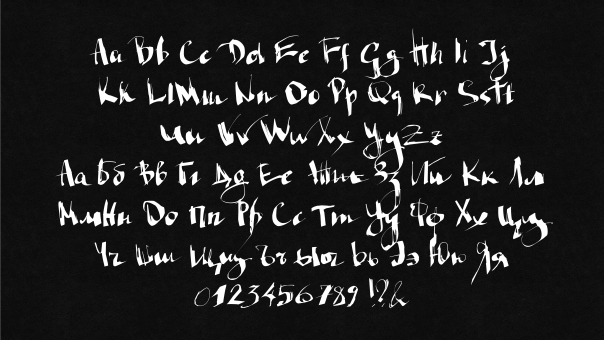 Aa Bb Cc Dd Ee Ff Gg Hh Ii Jj
Kk Ll Mm Nn Oo Pp Qq Rr Ss Tt
Uu Vv Ww Xx Yy Zz
Аа Бб Вв Гг Дд Ее Жж Зз Ии Кк Лл
Мм Нн Оо Пп Рр Сс Тт Уу Фф Хх Цц
Чч Шш Щщ Ъъ Ыы Ьь Ээ Юю Яя
0123456789 !?&